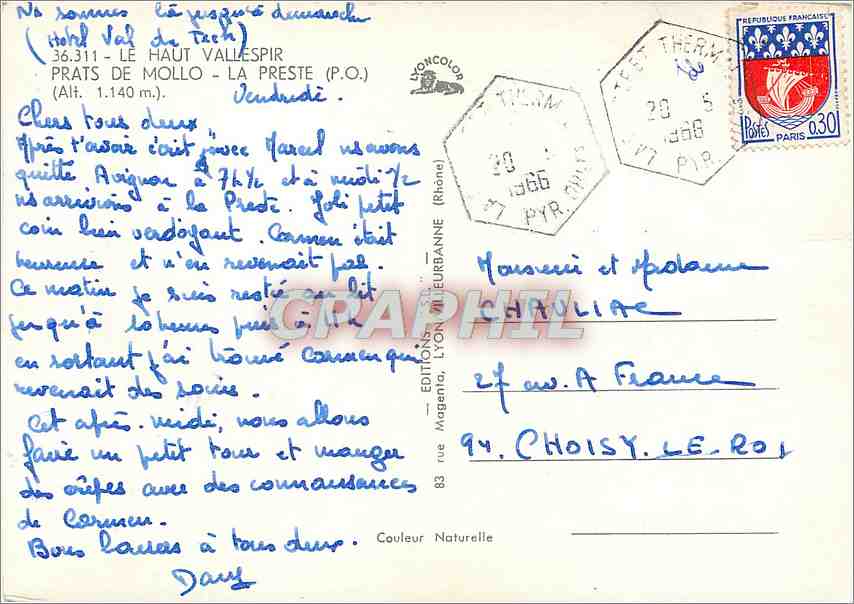 Ns sommes là jusqu'à dimanche
(Hôtel Val du Tech)
36.311 - LE HAUT VALLESPIR
PRATS DE MOLLO - LA PRESTE (P.O.)
(Alt. 1.140 m.).
LYONCOLOR
Vendredi.
Chers tous deux
Après t'avoir écrit, avec Marcel ns avons
quitté Avignon à 7h ½ et à midi ½
ns arrivions à la Preste. Joli petit
coin bien verdoyant. Carmen était
heureuse et n'en revenait pas.
Ce matin je suis resté au lit
jusqu'à 10 heures puis à
en sortant j'ai trouvé Carmen qui
revenait des soins.
Cet après-midi, nous allons
faire un petit tour et manger
des crêpes avec des connaissances
de Carmen.
Bons baisers à tous deux.
Dany
— EDITIONS "S.L." —
83 rue Magenta, LYON-VILLEURBANNE (Rhône)
Couleur Naturelle
THERM
20 5
1966
LA
PYR. ORIES
THERM
20 5
1966
LA
PYR.
REPUBLIQUE FRANÇAISE
Postes
PARIS 0,30
Monsieur et Madame
CHAULIAC
27 av. A France
94. CHOISY. LE. ROI
CPAPHIL